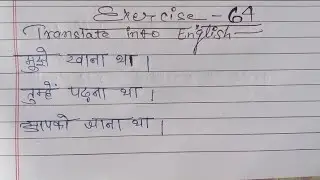 Exercise - 64
Translate into English
मुझे खाना था।
तुम्हें पढ़ना था।
आपको आना था।